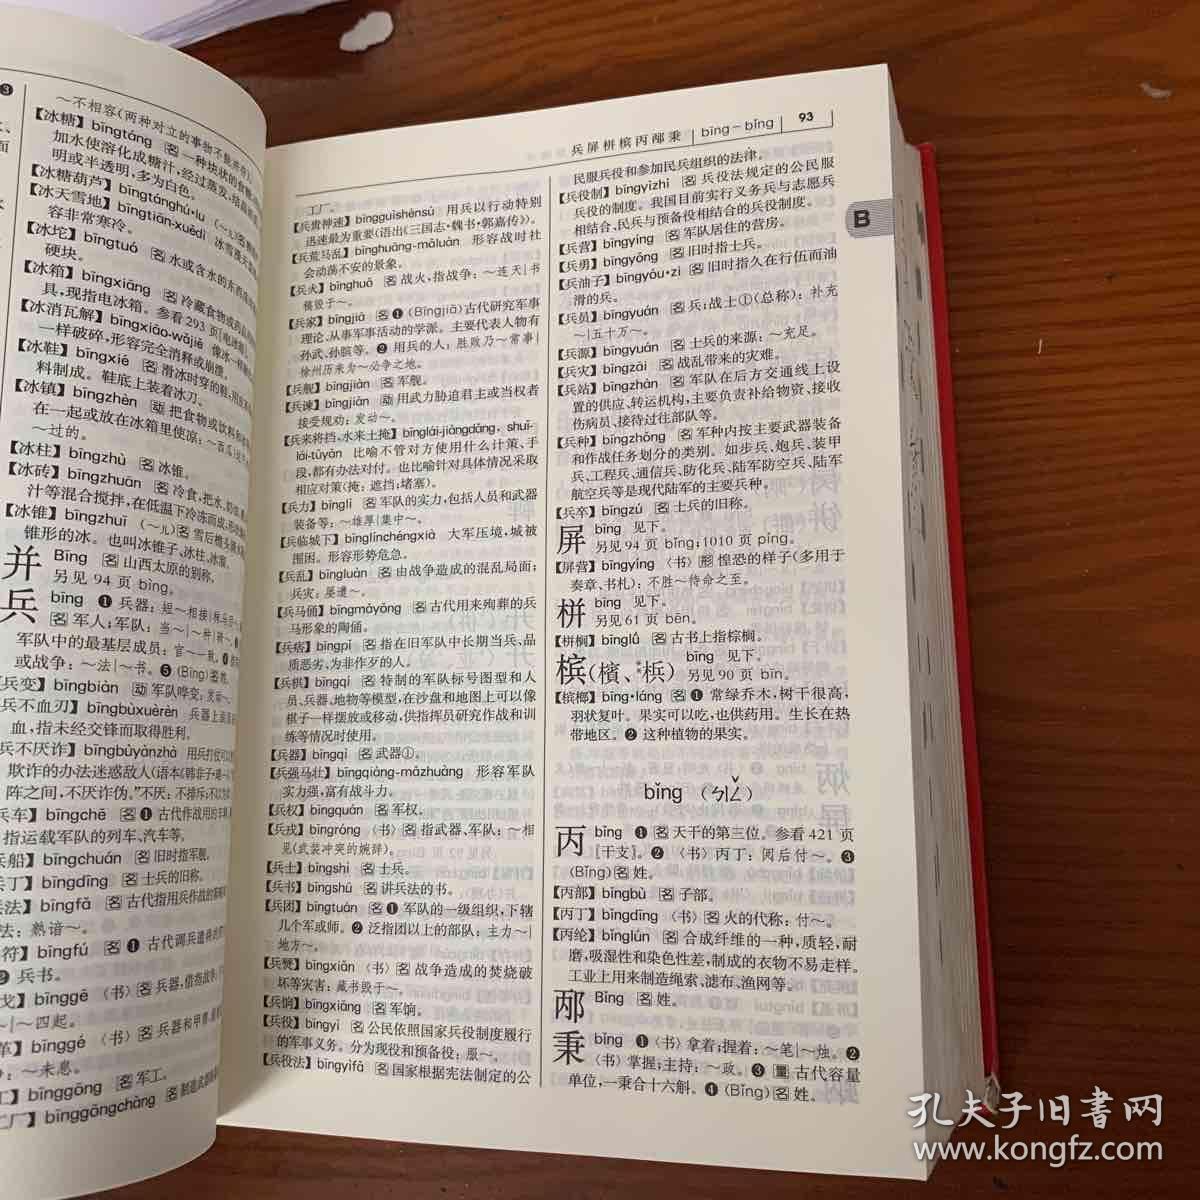 ～不相容(两种对立的事物不能并存)。
【冰糖】bīngtáng 名 一种块状的食糖,
加水使溶化成糖汁,经过蒸发,结晶
明或半透明,多为白色。
【冰糖葫芦】bīngtánghú·lu (～儿)名
【冰天雪地】bīngtiān-xuědì 冰雪漫天
容非常寒冷。
【冰坨】bīngtuó 名 水或含水的东西
硬块。
【冰箱】bīngxiāng 名 冷藏食物或药品
具,现指电冰箱。参看293页[电冰箱]。
【冰消瓦解】bīngxiāo-wǎjiě 像冰一样
一样破碎,形容完全消释或崩溃。
【冰鞋】bīngxié 名 滑冰时穿的鞋,
料制成。鞋底上装着冰刀。
【冰镇】bīngzhèn 动 把食物或饮料和
在一起或放在冰箱里使凉：～西瓜
～过的。
【冰柱】bīngzhù 名 冰锥。
【冰砖】bīngzhuān 名 冷食,把水、奶油、
汁等混合搅拌,在低温下冷冻而成,
【冰锥】bīngzhuī (～儿)名 雪后檐头滴水
锥形的冰。也叫冰锥子、冰柱、冰溜。
并 Bīng 名 山西太原的别称。
另见94页bìng。
兵 bīng ❶ 兵器：短～相接
名 军人；军队：当～|～种
军队中的最基层成员：官～一致。
或战争：～法|～书。❺ (Bīng)名 姓。
【兵变】bīngbiàn 动 军队哗变。
兵不血刃】bīngbùxuèrèn 兵器上
血,指未经交锋而取得胜利。
兵不厌诈】bīngbùyànzhà 用兵打仗
欺诈的办法迷惑敌人
阵之间,不厌诈伪。”不厌：不排斥
兵车】bīngchē ❶ 古代作战用的车
指运载军队的列车、汽车等。
兵船】bīngchuán 名 旧时指军舰。
兵丁】bīngdīng 名 士兵的旧称。
兵法】bīngfǎ 名 古代指用兵作战的
法：熟谙～。
符】bīngfú 名 ❶ 古代调兵遣将的
❷ 兵书。
戈】bīnggē 〈书〉名 兵器,借指战争
～|～四起。
革】bīnggé 〈书〉名 兵器和甲胄
～未息。
工】bīnggōng 名 军工。
工厂】bīnggōngchǎng 名 制造武器
兵屏栟槟丙邴秉 bīng－bǐng 93
工厂。
【兵贵神速】bīngguìshénsù 用兵以行动特别
迅速最为重要(语出《三国志·魏书·郭嘉传》)。
【兵荒马乱】bīnghuāng-mǎluàn 形容战时社
会动荡不安的景象。
【兵火】bīnghuǒ 名 战火,指战争：～连天|书
稿毁于～。
【兵家】bīngjiā 名 ❶ (Bīngjiā)古代研究军事
理论、从事军事活动的学派。主要代表人物有
孙武、孙膑等。❷ 用兵的人：胜败乃～常事|
徐州历来为～必争之地。
【兵舰】bīngjiàn 名 军舰。
【兵谏】bīngjiàn 动 用武力胁迫君主或当权者
接受规劝：发动～。
【兵来将挡，水来土掩】bīnglái-jiàngdǎng，shuǐ-
lái-tǔyǎn 比喻不管对方使用什么计策、手
段,都有办法对付。也比喻针对具体情况采取
相应对策(掩：遮挡；堵塞)。
【兵力】bīnglì 名 军队的实力,包括人员和武器
装备等：～雄厚|集中～。
【兵临城下】bīnglínchéngxià 大军压境,城被
围困。形容形势危急。
【兵乱】bīngluàn 名 由战争造成的混乱局面；
兵灾：屡遭～。
【兵马俑】bīngmǎyǒng 名 古代用来殉葬的兵
马形象的陶俑。
【兵痞】bīngpǐ 名 指在旧军队中长期当兵、品
质恶劣、为非作歹的人。
【兵棋】bīngqí 名 特制的军队标号图型和人
员、兵器、地物等模型,在沙盘和地图上可以像
棋子一样摆放或移动,供指挥员研究作战和训
练等情况时使用。
【兵器】bīngqì 名 武器①。
【兵强马壮】bīngqiáng-mǎzhuàng 形容军队
实力强,富有战斗力。
【兵权】bīngquán 名 军权。
【兵戎】bīngróng 〈书〉名 指武器、军队：～相
见(武装冲突的婉辞)。
【兵士】bīngshì 名 士兵。
【兵书】bīngshū 名 讲兵法的书。
【兵团】bīngtuán 名 ❶ 军队的一级组织,下辖
几个军或师。❷ 泛指团以上的部队：主力～|
地方～。
【兵燹】bīngxiǎn 〈书〉名 战争造成的焚烧破
坏等灾害：藏书毁于～。
【兵饷】bīngxiǎng 名 军饷。
【兵役】bīngyì 名 公民依照国家兵役制度履行
的军事义务。分为现役和预备役：服～。
【兵役法】bīngyìfǎ 名 国家根据宪法制定的公
民服兵役和参加民兵组织的法律。
【兵役制】bīngyìzhì 名 兵役法规定的公民服
兵役的制度。我国目前实行义务兵与志愿兵
相结合、民兵与预备役相结合的兵役制度。
【兵营】bīngyíng 名 军队居住的营房。
【兵勇】bīngyǒng 名 旧时指士兵。
【兵油子】bīngyóu·zi 名 旧时指久在行伍而油
滑的兵。
【兵员】bīngyuán 名 兵；战士①(总称)：补充
～|五十万～。
【兵源】bīngyuán 名 士兵的来源：～充足。
【兵灾】bīngzāi 名 战乱带来的灾难。
【兵站】bīngzhàn 名 军队在后方交通线上设
置的供应、转运机构,主要负责补给物资、接收
伤病员、接待过往部队等。
【兵种】bīngzhǒng 名 军种内按主要武器装备
和作战任务划分的类别。如步兵、炮兵、装甲
兵、工程兵、通信兵、防化兵、陆军防空兵、陆军
航空兵等是现代陆军的主要兵种。
【兵卒】bīngzú 名 士兵的旧称。
屏 bīng 见下。
另见94页bǐng；1010页píng。
【屏营】bīngyíng 〈书〉形 惶恐的样子(多用于
奏章、书札)：不胜～待命之至。
栟 bīng 见下。
另见61页bēn。
【栟榈】bīnglǘ 名 古书上指棕榈。
槟(檳、*梹) bīng 见下。
另见90页bīn。
【槟榔】bīng·láng 名 ❶ 常绿乔木,树干很高,
羽状复叶。果实可以吃,也供药用。生长在热
带地区。❷ 这种植物的果实。
bǐng (ㄅㄧㄥˇ)
丙 bǐng ❶ 名 天干的第三位。参看421页
[干支]。❷ 〈书〉丙丁：阅后付～。❸
(Bǐng)名 姓。
【丙部】bǐngbù 名 子部。
【丙丁】bǐngdīng 〈书〉名 火的代称：付～。
【丙纶】bǐnglún 名 合成纤维的一种,质轻,耐
磨,吸湿性和染色性差,制成的衣物不易走样。
工业上用来制造绳索、滤布、渔网等。
邴 Bǐng 名 姓。
秉 bǐng ❶ 〈书〉拿着；握着：～笔|～烛。❷
〈书〉掌握；主持：～政。❸ 量 古代容量
单位,一秉合十六斛。❹ (Bǐng)名 姓。
B
孔夫子旧书网
www.kongfz.com